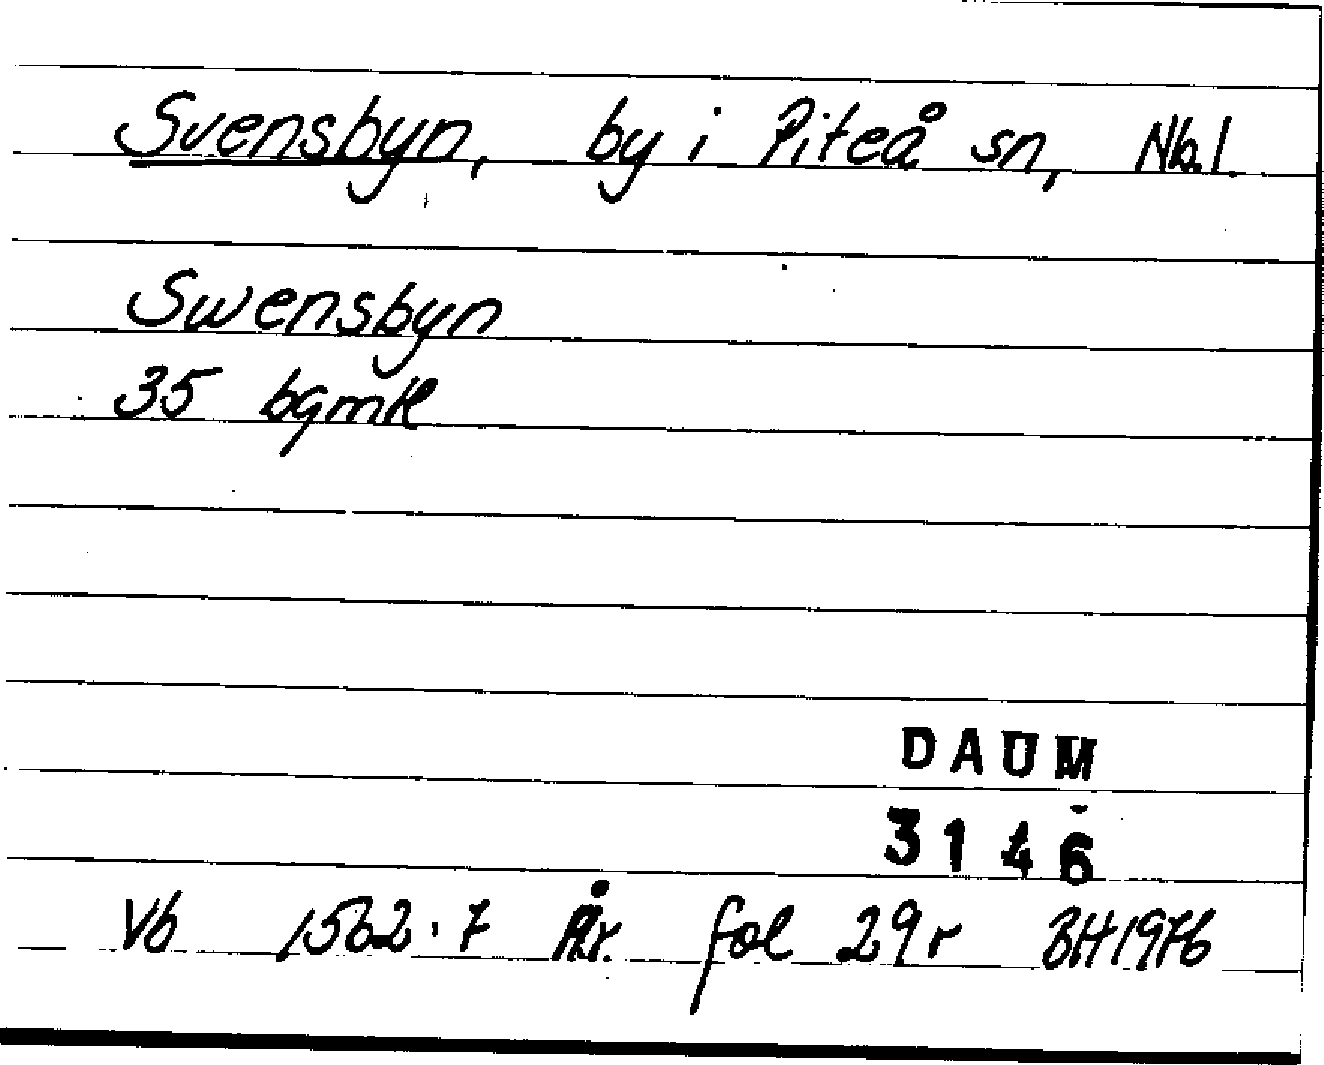 Svensbyn, by i Piteå sn, Nb.l.
Swensbyn
35 bgmk
DAUM
3146
Vb 1562:7 År. fol 29r BH1976